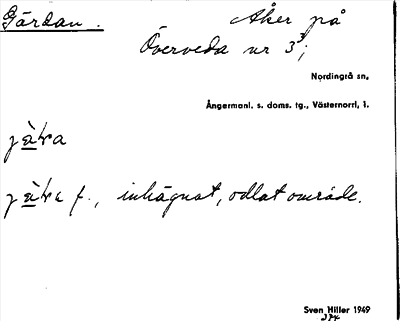 Gärdan.
Åker på
Överveda nr 3³;
Nordingrå sn.
Ångermanl. s. doms. tg., Västernorrl. l.
f., inhägnat, odlat område.
Sven Hiller 1949